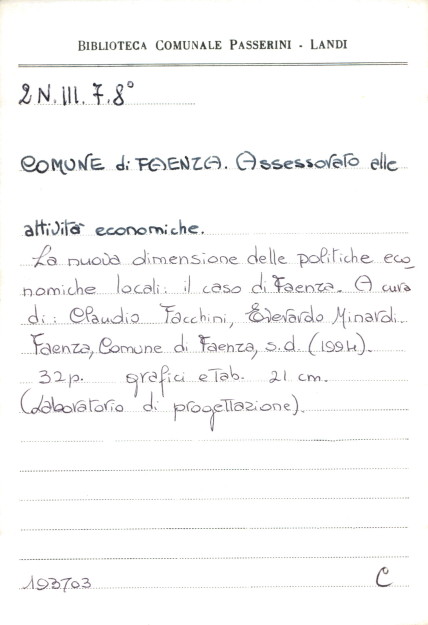 BIBLIOTECA COMUNALE PASSERINI - LANDI
2 N.III.7.8°
COMUNE di FAENZA. Assessorato alle
attività economiche.
La nuova dimensione delle politiche eco_
nomiche locali: il caso di Faenza. A cura
di: Claudio Facchini, Everardo Minardi.
Faenza, Comune di Faenza, s.d. (1994).
32p. grafici e Tab. 21 cm.
(Laboratorio di progettazione).
193703 C